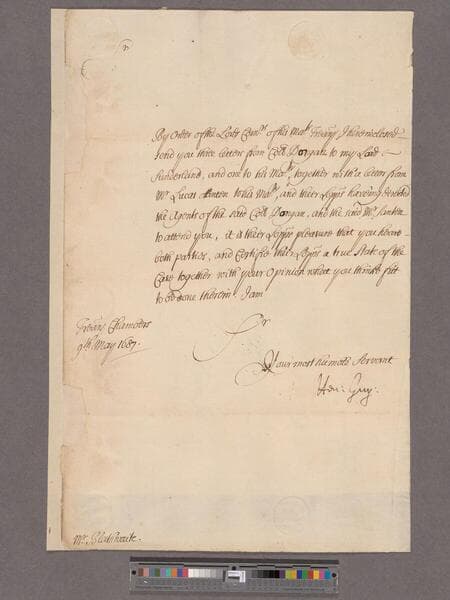 Sr
By Order of the Lords Comrs. of his Mats. Treary I have inclosed
send you three letters from Coll. Dongan to my Lord
Sunderland, and one to his Maty. together with a letter from
Mr. Lucas Santen to his Maty, and their Lopps haveing directed
the Agents of the said Coll. Dongan, and the said Mr. Santen
to attend you, it is their Lopps pleasure that you heare
both parties, and Certifie their Lopps a true State of the
Case together with your Opinion what you thinke fitt
to be done therein I am
Sr
Treary Chambers
9th. May 1687.
Your most humble Servant
Hen: Guy.
Mr. Blathwaite.